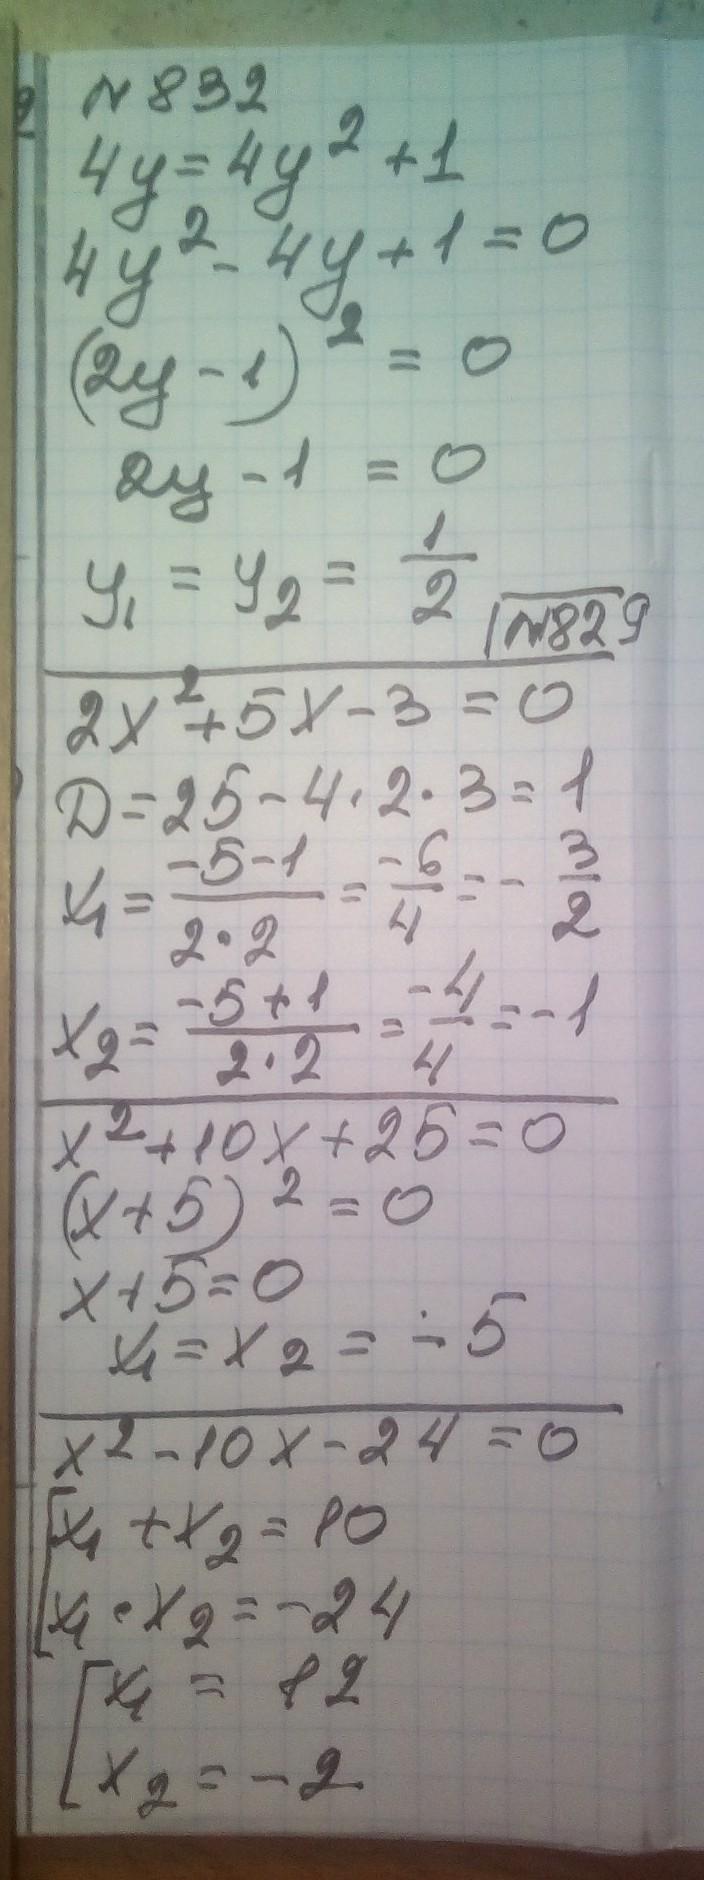 №832
4y=4y²+1
4y²-4y+1=0
(2y-1)²=0
2y-1=0
y₁=y₂=1/2
№829
2x²+5x-3=0
D=25-4·2·3=1
x₁=(-5-1)/(2·2)=-6/4=-3/2
x₂=(-5+1)/(2·2)=-4/4=-1
x²+10x+25=0
(x+5)²=0
x+5=0
x₁=x₂=-5
x²-10x-24=0
[x₁+x₂=10
x₁·x₂=-24
[x₁=12
x₂=-2